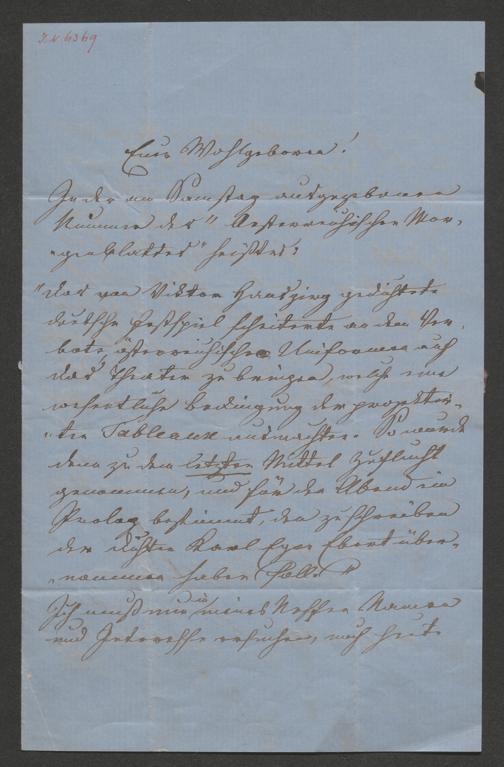 I.N. 6369
Euer Wohlgeboren!
In der am Samstag ausgegebenen
Nummer des "Oesterreichischen Mor-
genblattes" heißt es:
"Das von Viktor Hansgirg gedichtete
deutsche Festspiel scheiterte an dem Ver-
bote, österreichische Uniformen auf
das Theater zu bringen, welche eine
wesentliche Bedingung der projektir-
ten Tableaux ausmachten. So wurde
denn zu dem letzten Mittel Zuflucht
genommen, und für den Abend ein
Prolog bestimmt, den zu schreiben
der Dichter Karl Egon Ebert über-
nommen haben soll."
Ich muß nun in meines Neffen Namen
und Interesse ersuchen, noch heute